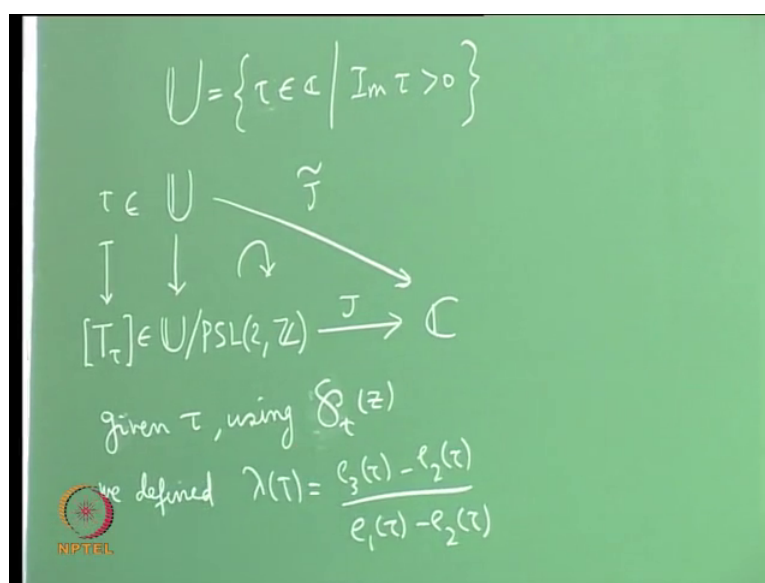 𝕌 = { τ ∈ ℂ | Im τ > 0 }
τ ∈ 𝕌
J̃
[T_τ] ∈ 𝕌/PSL(2, ℤ) → ℂ
J
given τ, using ℘_τ(z)
we defined λ(τ) = (e₃(τ) - e₂(τ)) / (e₁(τ) - e₂(τ))
NPTEL